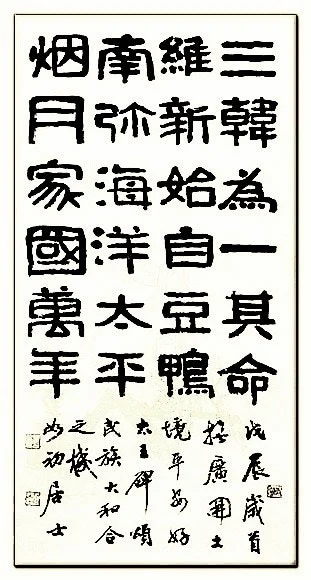 三韓為一其命
維新始自豆鴨
南弥海洋太平
烟月家國萬年
戊辰歲首
廣開土
境平安好
太王碑頌
民族大和合
之機
如初居士